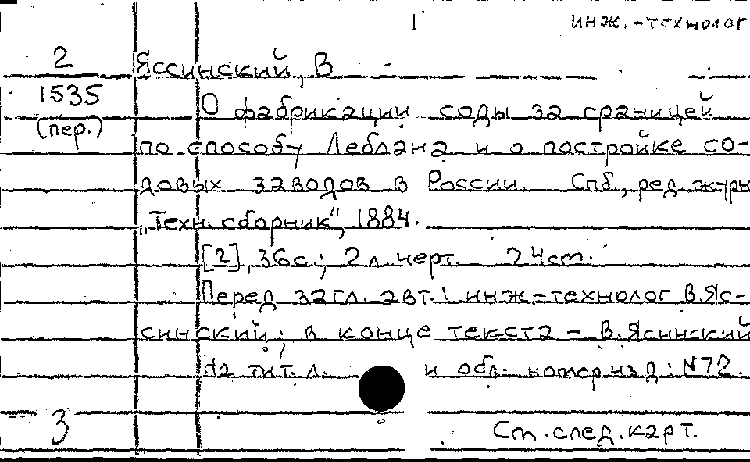 I инж.-технолог
2 Яссинский, В
1535 О фабрикации соды за границей
(пер.) по способу Леблана и о постройке со-
довых заводов в России. Спб., ред. журн
„Техн. сборник“, 1884.
[2], 36с.; 2 л. черт. 24см.
Перед загл. авт.: инж-технолог В.Яс-
синский; в конце текста – В.Ясинский
На тит. л. и обл. номер изд: N72.
3 См. след. карт.